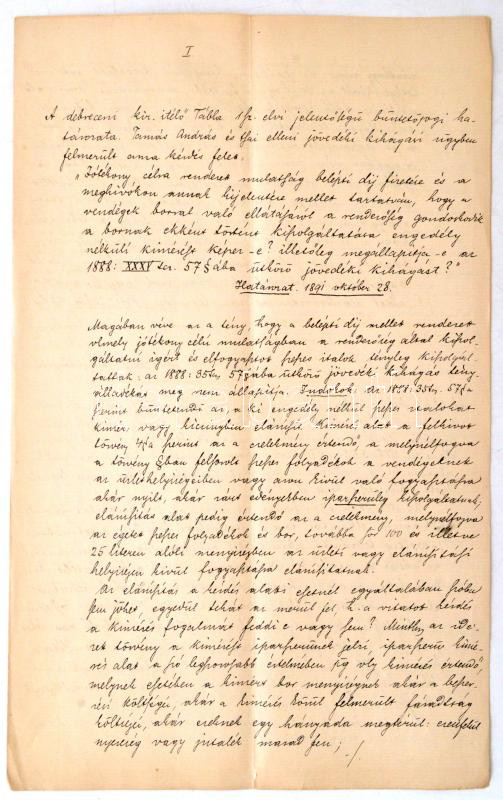 I
A debreceni kir. itélő Tábla 1sz. elvi jelentőségű büntetőjogi ha-
tározata. Tamás András és tsai elleni jövedéki kihágási ügyben
felmerült ama kérdés felett:
"Jótékony célra rendezett mulatság belépti díj fizetése és a
meghivókon annak kijelentése mellett tartatván, hogy a
vendégek borral való ellátásáról a rendezőség gondoskodik
a bornak ekként történt kiszolgáltatása engedély
nélküli kimérést képez-e? illetőleg megállapítja-e az
1888: XXXV tcz. 57 § ába ütköző jövedéki kihágást?"
Határozat. 1891 október 28.
Magában véve az a tény, hogy a belépti díj mellett rendezett
vlmely jótékony célú mulatságban a rendezőség által kiszol-
gáltatni igért és elfogyasztott szeszes italok tényleg kiszolgál-
tattak: az 1888: 35tcz. 57§ába ütköző jövedéki kihágás tény-
álladékát meg nem állapítja. Indokok: az 1888:35tcz. 57§a
szerint büntetendő az, a ki engedély nélkül szeszes italokat
kimér, vagy kicsinyben elárúsít. Kimérés alatt a felhivott
törvény 4§a szerint az a cselekmény értendő, a melynélfogva
a törvény §ban felsorolt szeszes folyadékok a vendégeknek
az üzlethelyiségeiben vagy azon kívül való fogyasztásra
akár nyilt, akár zárt edényekben iparszerüleg kiszolgáltatnak,
elárúsítás alatt pedig értendő az a cselekmény, melynélfogva
az égetett szeszes folyadékok és bor, továbbá sör 100 és illetve
25 literen alóli mennyiségben az üzleti vagy elárúsítási
helyiségen kívüli fogyasztásra elárúsíttatnak.
Az elárúsítás a kérdés alatti esetnél egyáltalában szóba
sem jöhet, egyedül tehát az merül fel, h. a vitatott kérdés
a kimérés fogalmát fedi e vagy sem? Minthogy az idé-
zett törvény a kimérést iparszerünek jelzi, iparszerű kimé-
rés alatt a szó legtágabb értelmében csak vly kimérés értendő,
melynek esetében a kimért bor mennyiségnek akár a besze-
rési költsége, akár a kimérés körül felmerült fáradtság
költségei, akár ezeknek egy hányada megtérül: ezenfelül
nyereség vagy jutalék marad fen;